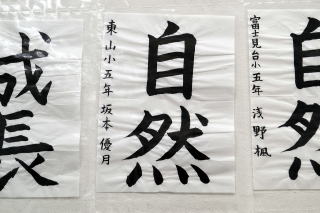 富士見台小五年 浅野楓
自然
東山小五年 坂本優月
成長